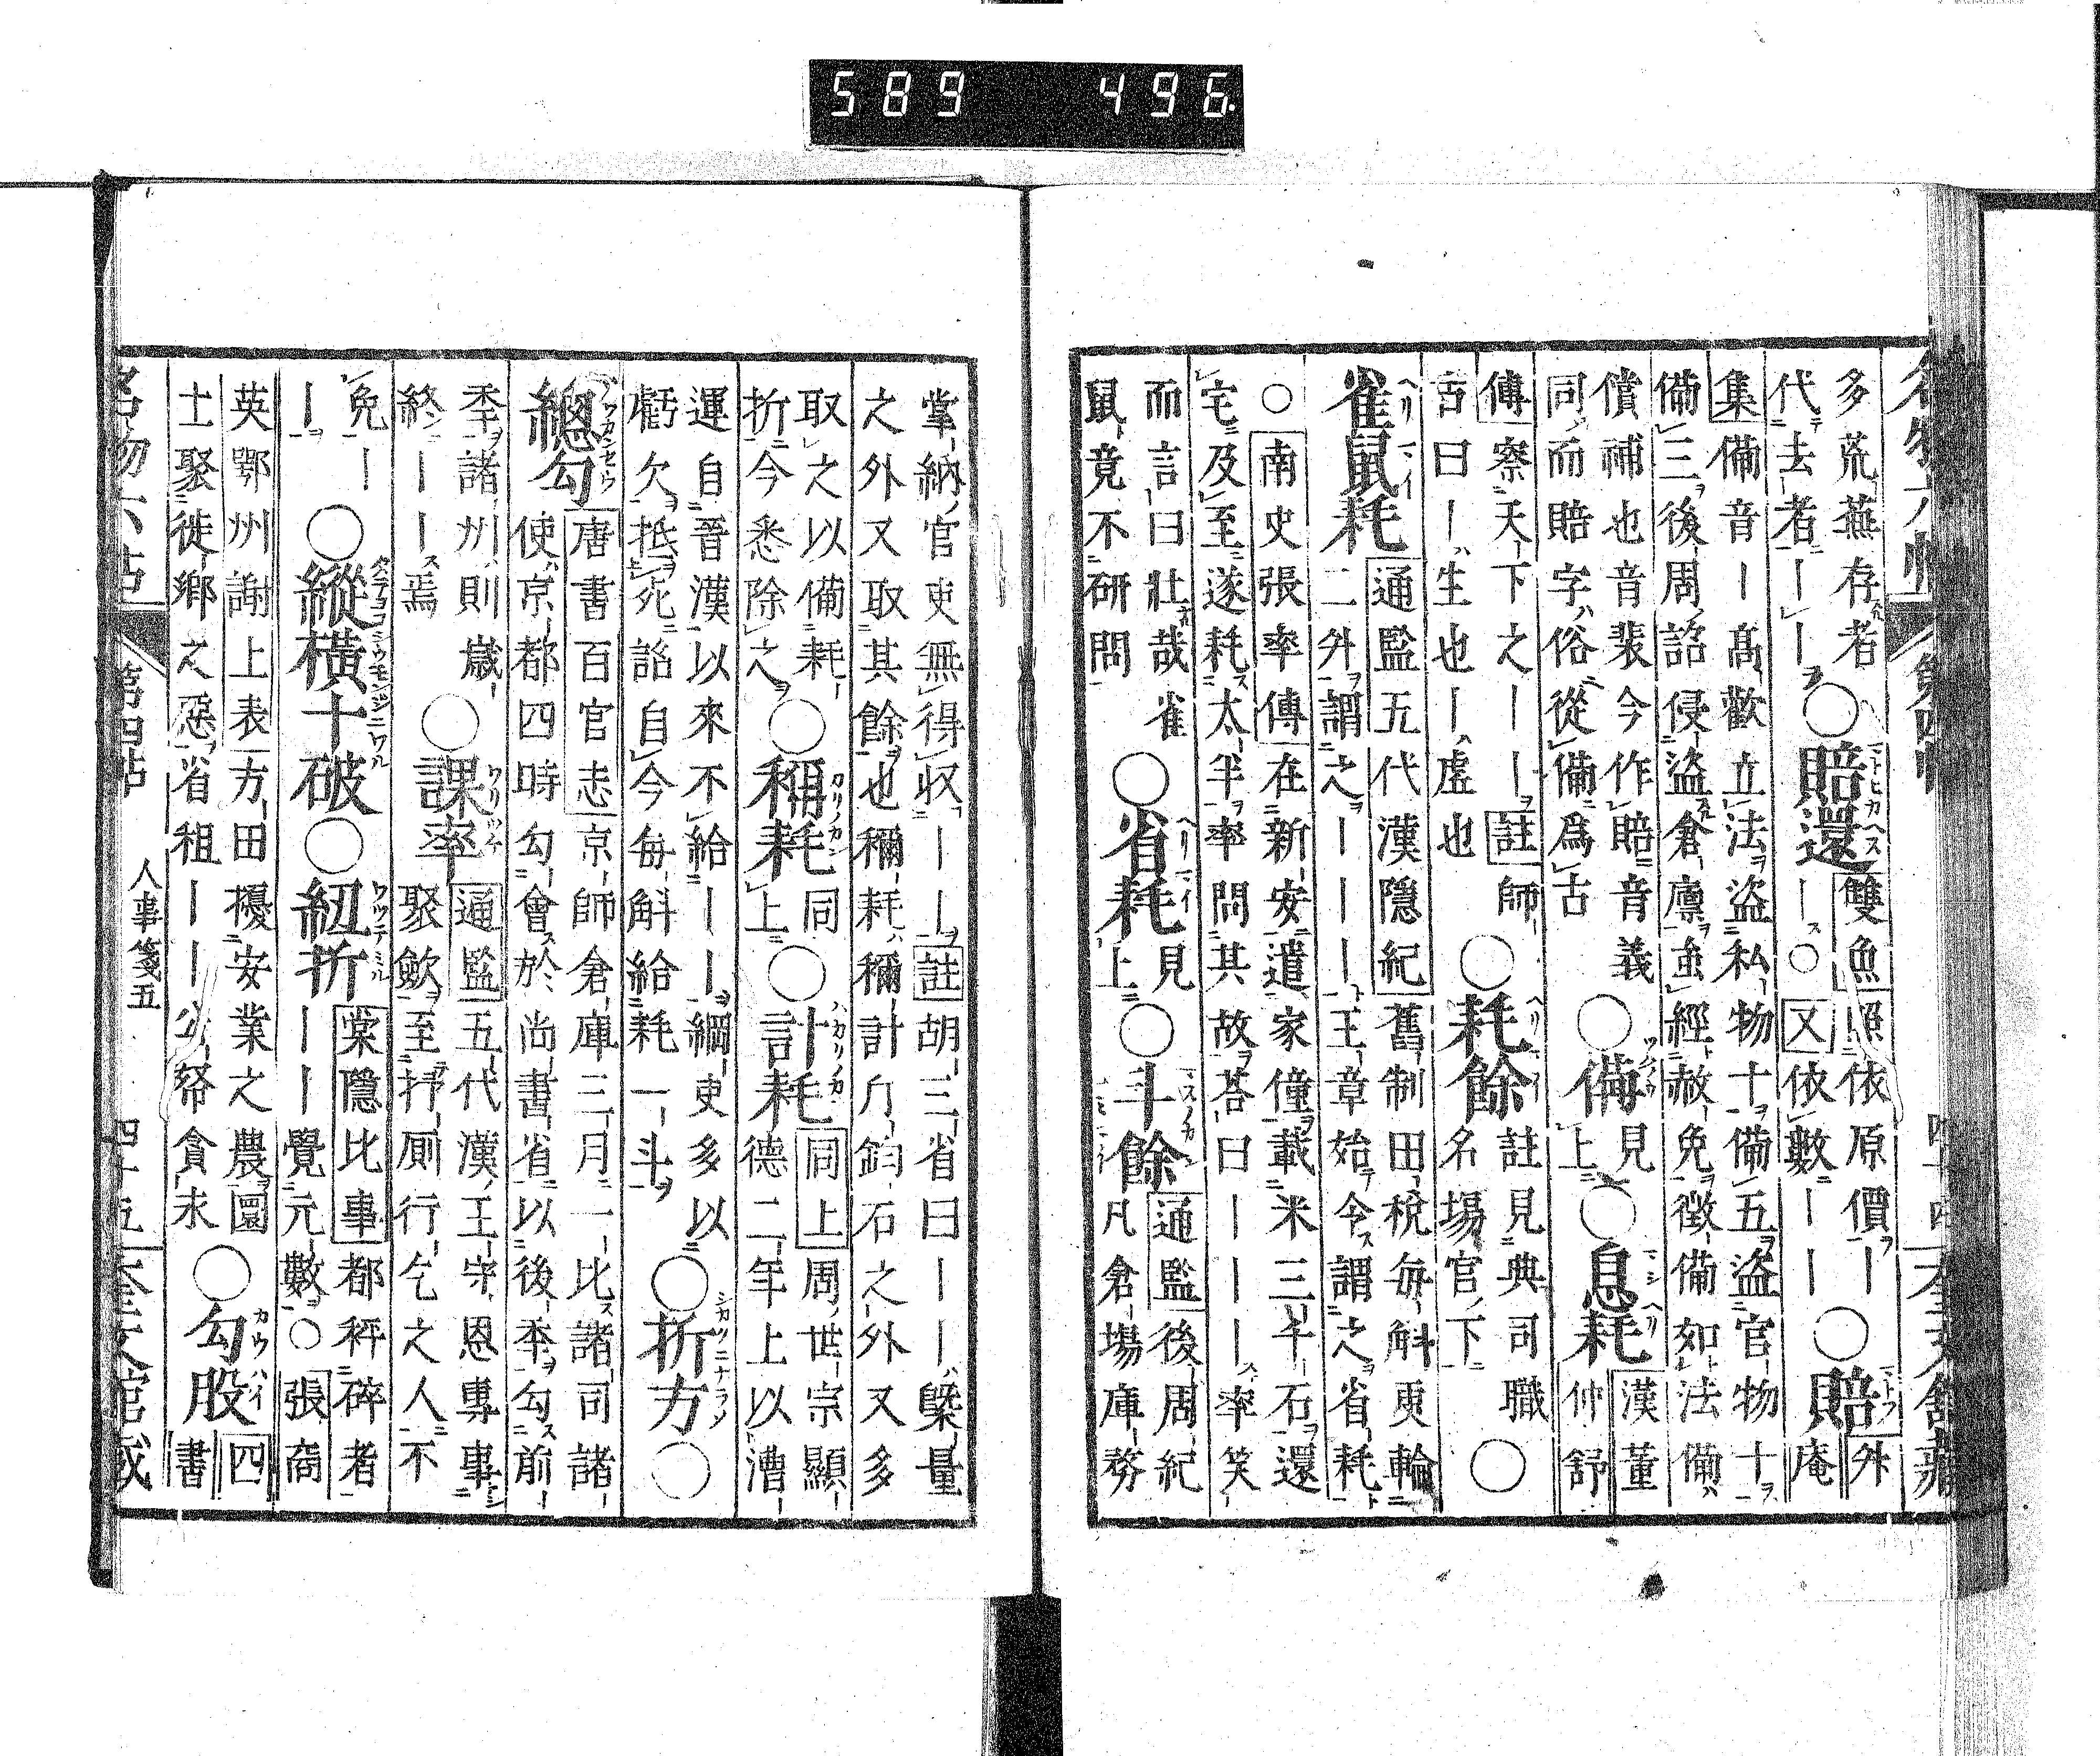 589 496.
多荒蕪存者
代去者ーー
賠還
雙魚
照依原價ー
ー○又依數ーー
賠
舛
庵
集備音ー高歡立法盜私物十備五盜官物十
備三後周詔侵盜倉廩雖經赦免徵備如法備
償補也音裴今作賠音義
同而賠字俗從備爲古
備
見上
息耗
漢董
仲舒
傳察天下之ーー註師
古曰ー生也ー虛也
耗餘
註見典司職
名場官下
雀鼠耗
通監五代漢隱紀舊制田稅每斛更輸
二舛謂之ーーー王章始令謂之省耗
○南史張率傳在新安遣家僮載米三千石還
宅及至遂耗太半率問其故荅曰ーーー率笑
而言曰壯哉雀
鼠竟不研問
省耗
見上
斗餘
通監後周紀
凡倉場庫務
掌納官吏無得收ーー註胡三省曰ーー槩量
之外又取其餘也稱耗稱計斤鈞石之外又多
取之以備耗
折今悉除之
稱耗
同上
計耗
同上周世宗顯
德二年上以漕
運自晉漢以來不給ーー綱吏多以
虧欠抵死詔自今每斛給耗一斗
折方
總勾
唐書百官志京師倉庫三月一比諸司諸
使京都四時勾會於尚書省以後季勾前
季諸州則歲
終ーー焉
課率
通監五代漢王守恩專事
聚歛至抒厠行乞之人不
免ー
ー
縱橫十破
紐折
棠隱比事都秤碎者
ーー覺元數○張裔
英鄂州謝上表一方田擾安業之農園
士聚徙鄉之惡省租ーー公帑貪未
勾股
四
書
名物六帖 第四帖 人事箋五 四十五